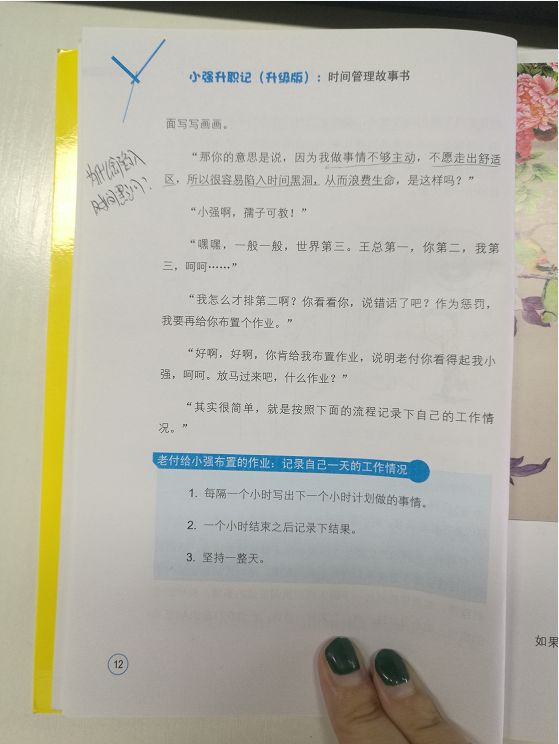 小强升职记（升级版）：时间管理故事书
面写写画画。
“那你的意思是说，因为我做事情不够主动，不愿走出舒适
区，所以很容易陷入时间黑洞，从而浪费生命，是这样吗？”
“小强啊，孺子可教！”
“嘿嘿，一般一般，世界第三。王总第一，你第二，我第
三，呵呵……”
“我怎么才排第二啊？你看看你，说错话了吧？作为惩罚，
我要再给你布置个作业。”
“好啊，好啊，你肯给我布置作业，说明老付你看得起我小
强，呵呵。放马过来吧，什么作业？”
“其实很简单，就是按照下面的流程记录下自己的工作情
况。”
老付给小强布置的作业：记录自己一天的工作情况
1. 每隔一个小时写出下一个小时计划做的事情。
2. 一个小时结束之后记录下结果。
3. 坚持一整天。
12
为什么会陷入
时间黑洞？
如果